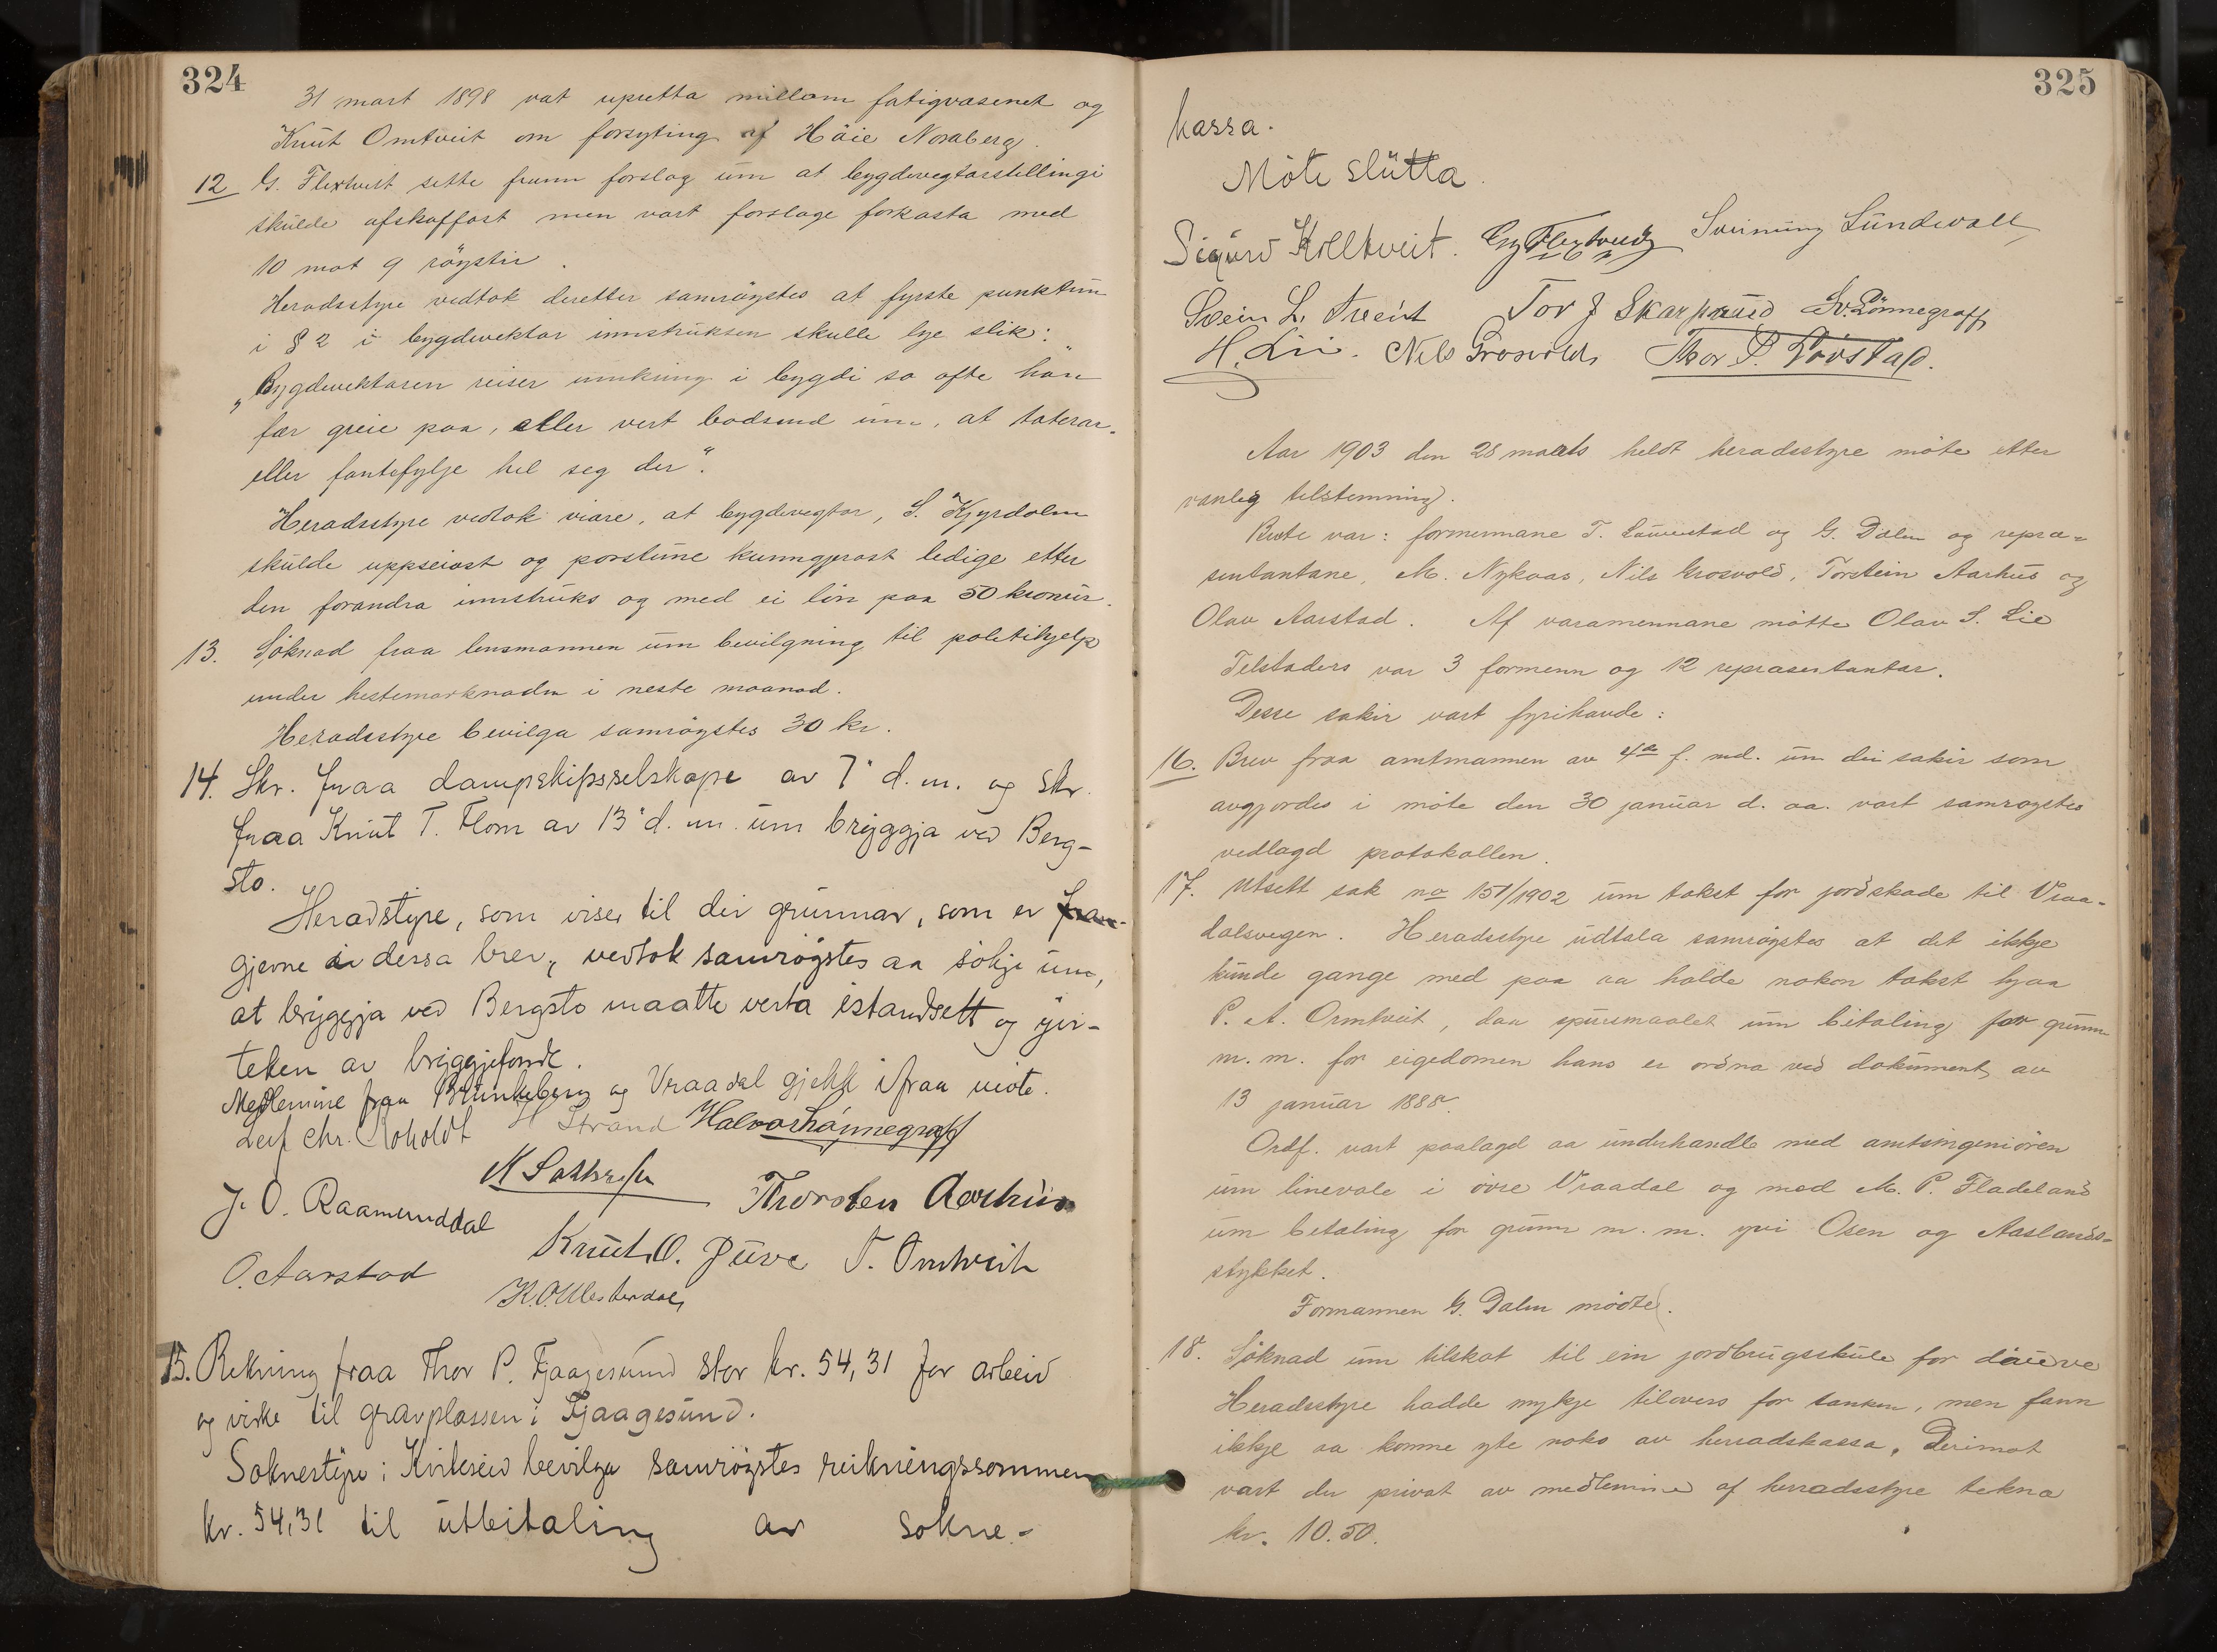 324
31 mart 1898 vat upretta millom fatigvasenet og
Knut Omtveit om forsyting af Häie Noraberg.
12 G. Flextveit sette framm forslag um at bygdevegtarstellingi
skulde afskaffast men vart forslage forkasta med
10 mot 9 röyster.
Heradsstyre vedtok deretter samröystes at fyrste punktum
i § 2 i bygdevektar innstruksen skulle lye slik:
"Bygdevektaren reiser umkring i bygdi so ofte han
fær greie paa, eller vert bodsend um, at taterar-
eller fantefylje hel seg der".
Heradsstyre vedtok viare, at bygdevegtar, S. Kyrdalen
skulde uppseiast og porstune kunngjerast ledige etter
den forandra innstruks og med ei lön paa 50 kronur.
13. Söknad fraa lensmannen um bevilgning til politihjelp
under hestemarknaden i neste maanad.
Heradsstyre bevilga samröystes 30 kr.
14. Skr. fraa dampskipsselskape av 7' d. m. og skr.
fraa Knut T. Flom av 13' d. m. um bryggja ved Berg-
sto.
Heradstyre, som viser til dei grunnar, som er fram-
gjevne i dessa brev, vedtok samröystes aa sökje um,
at bryggja ved Bergsto maatte verta istandsett og yvi-
teken av bryggjefonde.
Medlemine fraa Brunkeberg og Vraadal gjekk ifraa möte.
Leif Chr. Roholdt H Strand Halvor Lönnegraff
J. O. Raamunddal Thorsten Aarhus
O. Aarstad Knut O. Juve T. Omtveit
K. O. Vlesterdal
15. Rekning fraa Thor P. Fjaagesund stor kr. 54,31 for arbeid
og virke til gravplassen i Fjaagesund.
Soknestyre i Kviteseid bevilga samröystes reikningssommen
kr. 54,31 til utbeitaling av sokne-
325
kassa.
Möte slutta.
Sigurd Kolltveit. G. Flextveit Sveinung Lundevall
Svein L. Tveit Tor J Skarprud Sv. Lönnegraff
H. Lii. Nils Grosvold, Thor P. Lövstad.
Aar 1903 den 28 marts heldt heradsstyre möte etter
vanleg tilstemning.
Burte var: formennane T. Lauvestad og G. Dalen og repræ-
sentantane, M. Nykaas, Nils Grosvold, Torstein Aarhus og
Olav Aarstad. Af varamennane mötte Olav S. Lie
Telstaders var 3 formenn og 12 repræsentantar.
Desse sakir vart fyrihavde:
16. Brev fraa amtmannen av 4de f. md. um dei sakir som
avgjordes i möte den 30 januar d. aa. vart samröystes
vedlagd protokollen.
17. Utsett sak no 151/1902 um takst for jordskade til Vraa-
dalsvegen. Heradsstyre udtala samröystes at det ikkje
kunde gange med paa aa halde nokon takst hjaa
P. A. Ormtveit, daa spursmaalet um betaling for grunn
m. m. for eigedomen hans er ordna ved dokument av
13 januar 1888.
Ordf. vart paalagd aa underhandle med amtsingeniören
um linevale i övre Vraadal og med M. P. Fladeland
um betaling for grunn m. m. yvi Osen og Aaslands-
stykket.
Formannen G. Dalen mödte.
18. Söknad um tilskot til ein jordbrugsskule for dauve
Heradsstyre hadde mykje tilovers for tanken, men fann
ikkje aa konne yte noko av herradskassa, Derimot
vart der privat av medlemine af herradsstyre tekna
kr. 10.50.